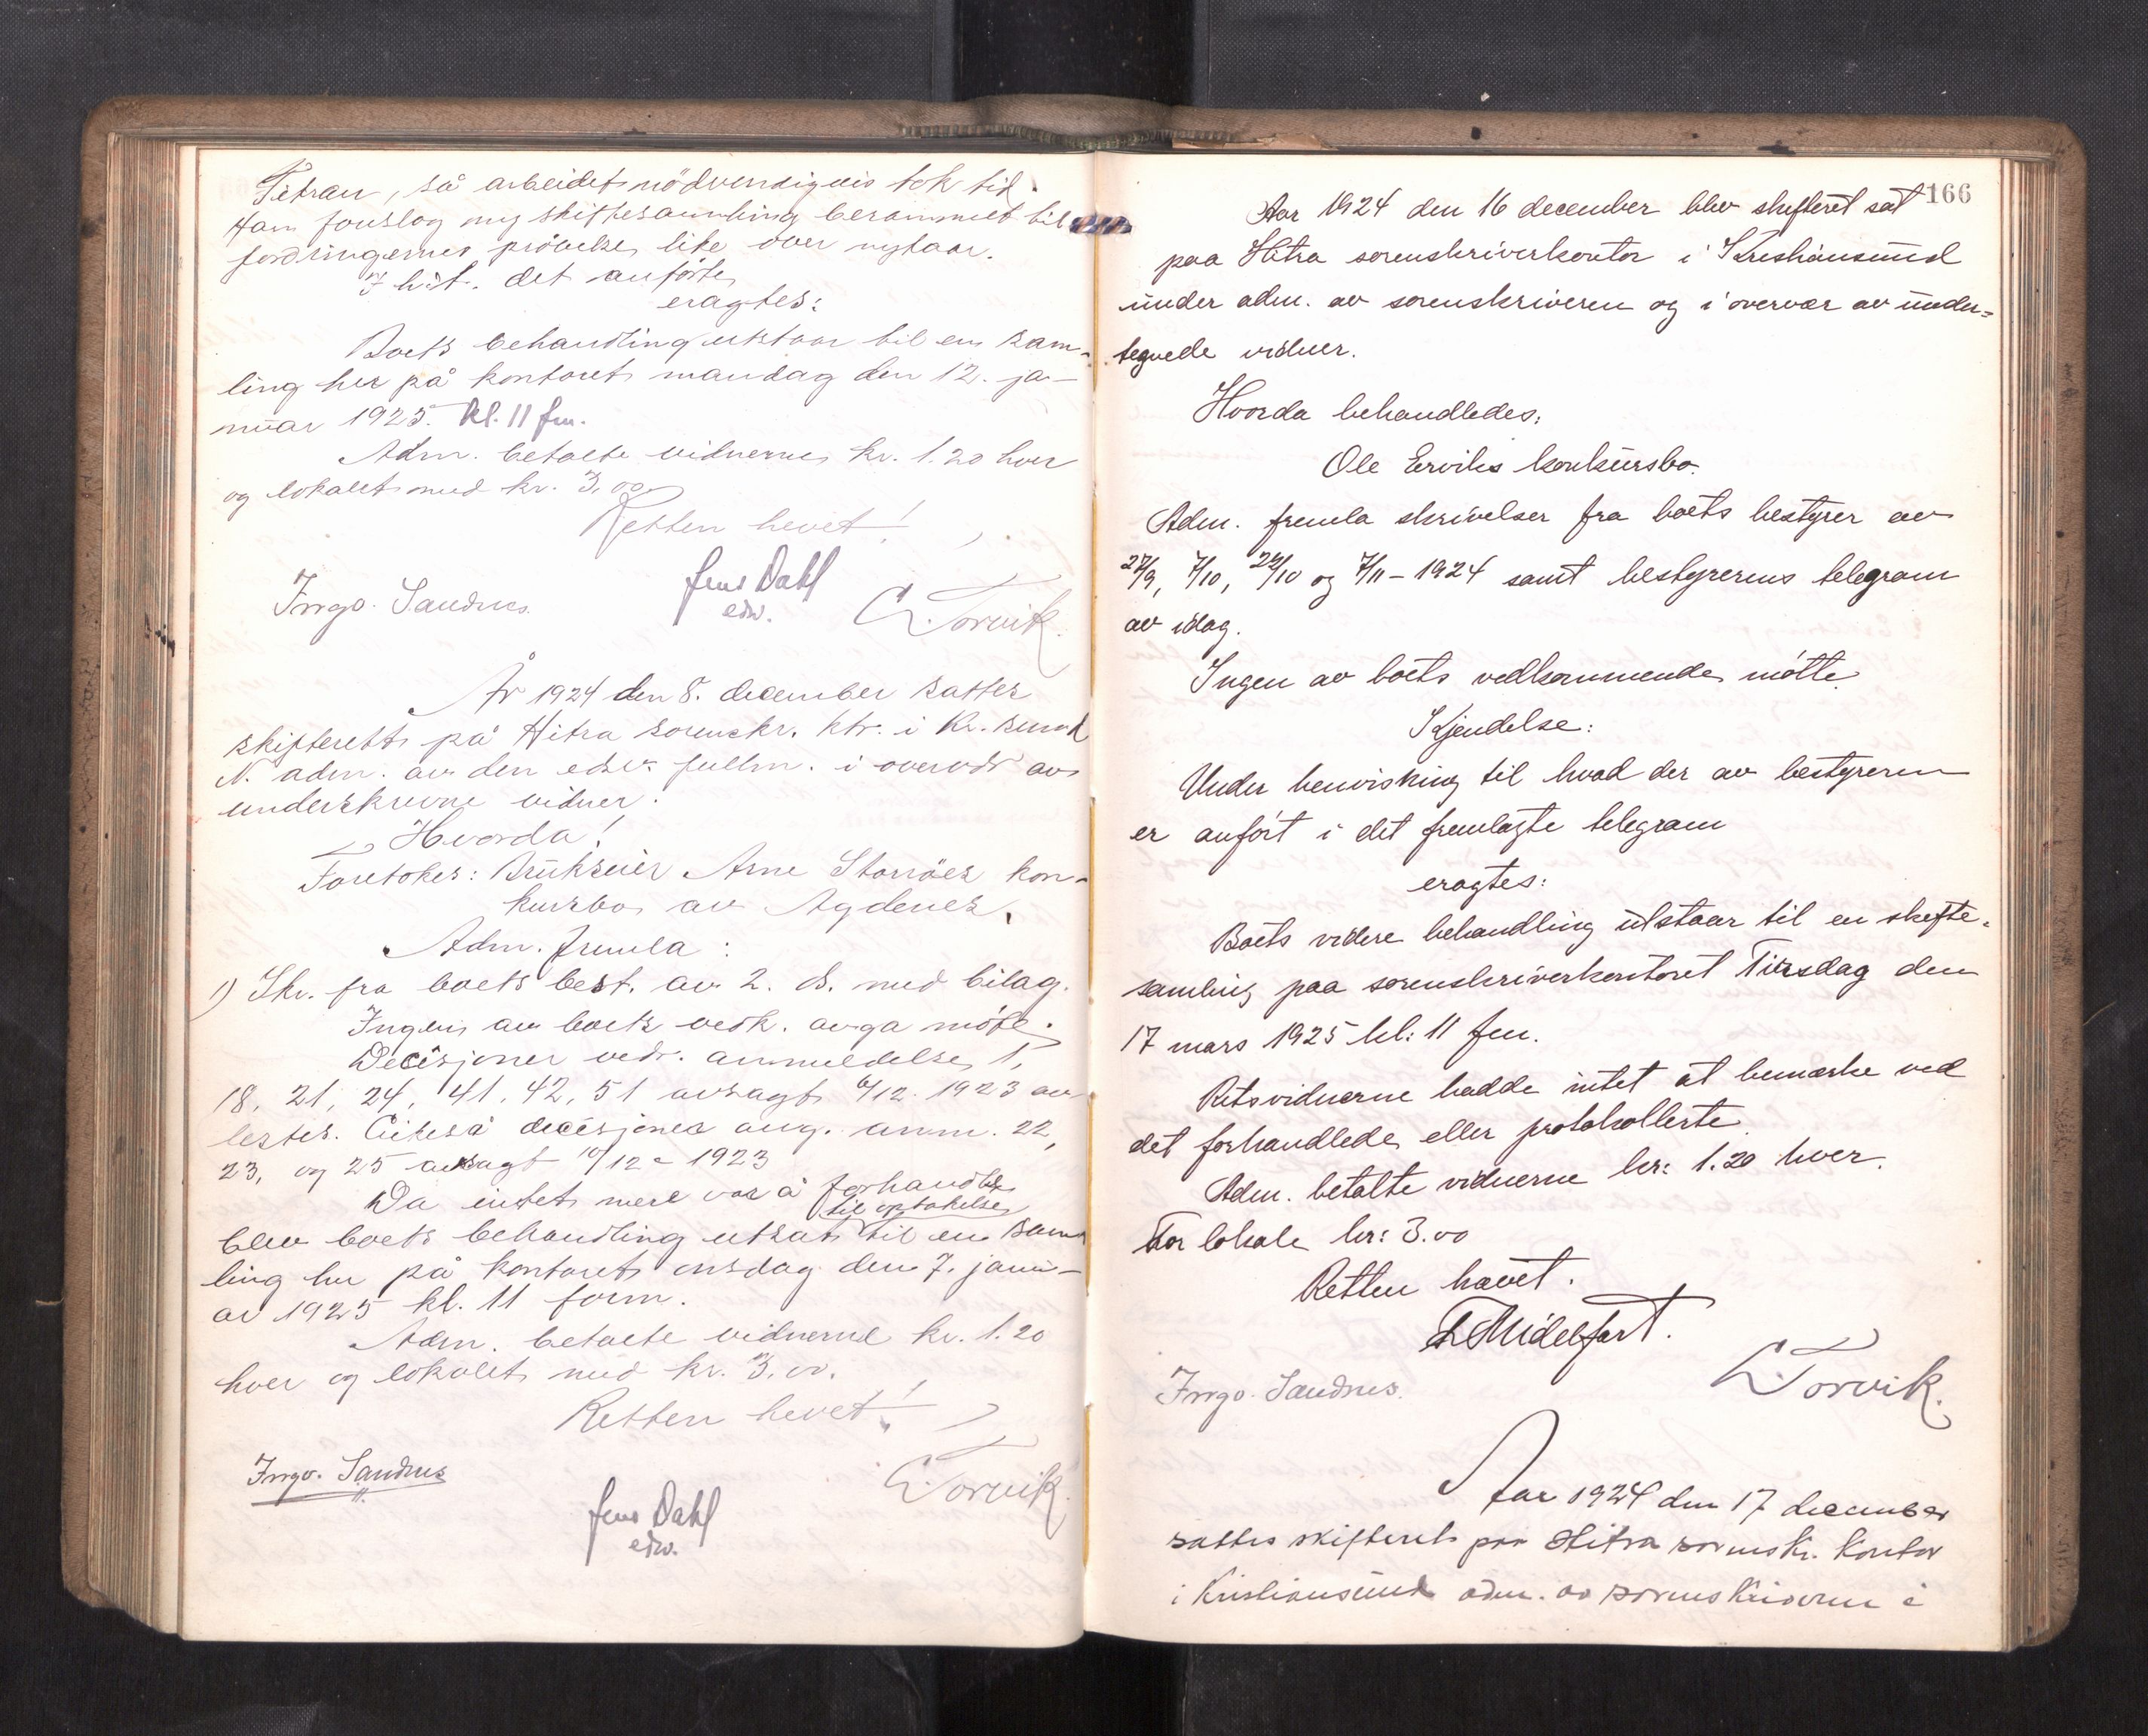 Titran, så arbeidet nödvendigvis tok tid.
Han foreslog ny skiftesamling berammet til
fordringernes prövelse like over nytaar.
I h. t. det anförte
eragtes:
Boets behandling utstaar til en sam-
ling her på kontoret mandag den 12. ja-
nuar 1925. kl. 11 fm.
Adm. betalte vidnerne kr. 1.20 hver
og lokalet med kr. 3,00
Retten hevet!
Ingv. Sandnes. Jens Dahl
edv. E. Torvik.
År 1924 den 8. december sattes
skifterett på Hitra sorenskr. ktr. i Kr. sund
N. adm. av den edsv. fullm. i overvær av
underskrevne vidner.
Hvorda!
Foretokes: Brukseier Arne Storröes kon-
kursbo av Agdenes.
Adm. fremla:
1) Skr. fra boets best. av 2. ds. med bilag.
Ingen av boets vedk. avga möte.
Decisjoner vedr. anmeldelse 1,
18, 21, 24, 41, 42, 51 avsagt 6/12. 1923 av-
lestes. Likeså decisjoner ang. anm. 22,
23, og 25 avsagt 10/12 - 1923
Da intet mere var å forhandle
til optakelse
blev boets behandling utsatt til en sam-
ling her på kontoret onsdag den 7. janu-
ar 1925 kl. 11 form.
Adm. betalte vidnerne kr. 1.20
hver og lokalet med kr. 3,00.
Retten hevet!
Ingv. Sandnes E. Torvik.
Jens Dahl
edv.
166
Aar 1924 den 16 december blev skifteret sat
paa Hitra sorenskriverkontor i Kristiansund
under adm. av sorenskriveren og i overvær av under-
tegnede vidner.
Hvorda behandledes:
Ole Ervik's konkursbo.
Adm. fremla skrivelser fra boets bestyrer av
27/9, 7/10, 24/10 og 7/11 - 1924 samt bestyrerens telegram
av idag.
Ingen av boets vedkommende mötte.
Kjendelse:
Under henvisning til hvad der av bestyreren
er anfört i det fremlagte telegram
eragtes:
Boets videre behandling utstaar til en skifte-
samling paa sorenskriverkontoret Tirsdag den
17 mars 1925 kl: 11 fm.
Retsvidnerne hadde intet at bemærke ved
det forhandlede eller protokollerte.
Adm. betalte vidnerne kr: 1.20 hver.
For lokale kr: 3.00
Retten hævet.
Midelfart.
Ingv. Sandnes. E. Torvik.
Aar 1924 den 17 december
sattes skifteret paa Hitra sorenskr. kontor
i Kristiansund adm. av sorenskriveren i